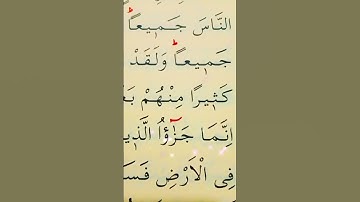 النَّاسَ جَمٖيعاًؕ
جَمٖيعاًؕ وَلَقَدْ
كَثٖيرًا مِنْهُمْ بَعْ
اِنَّمَا جَزٰٓؤُا الَّذٖينَ
فِى الْاَرْضِ فَسَا